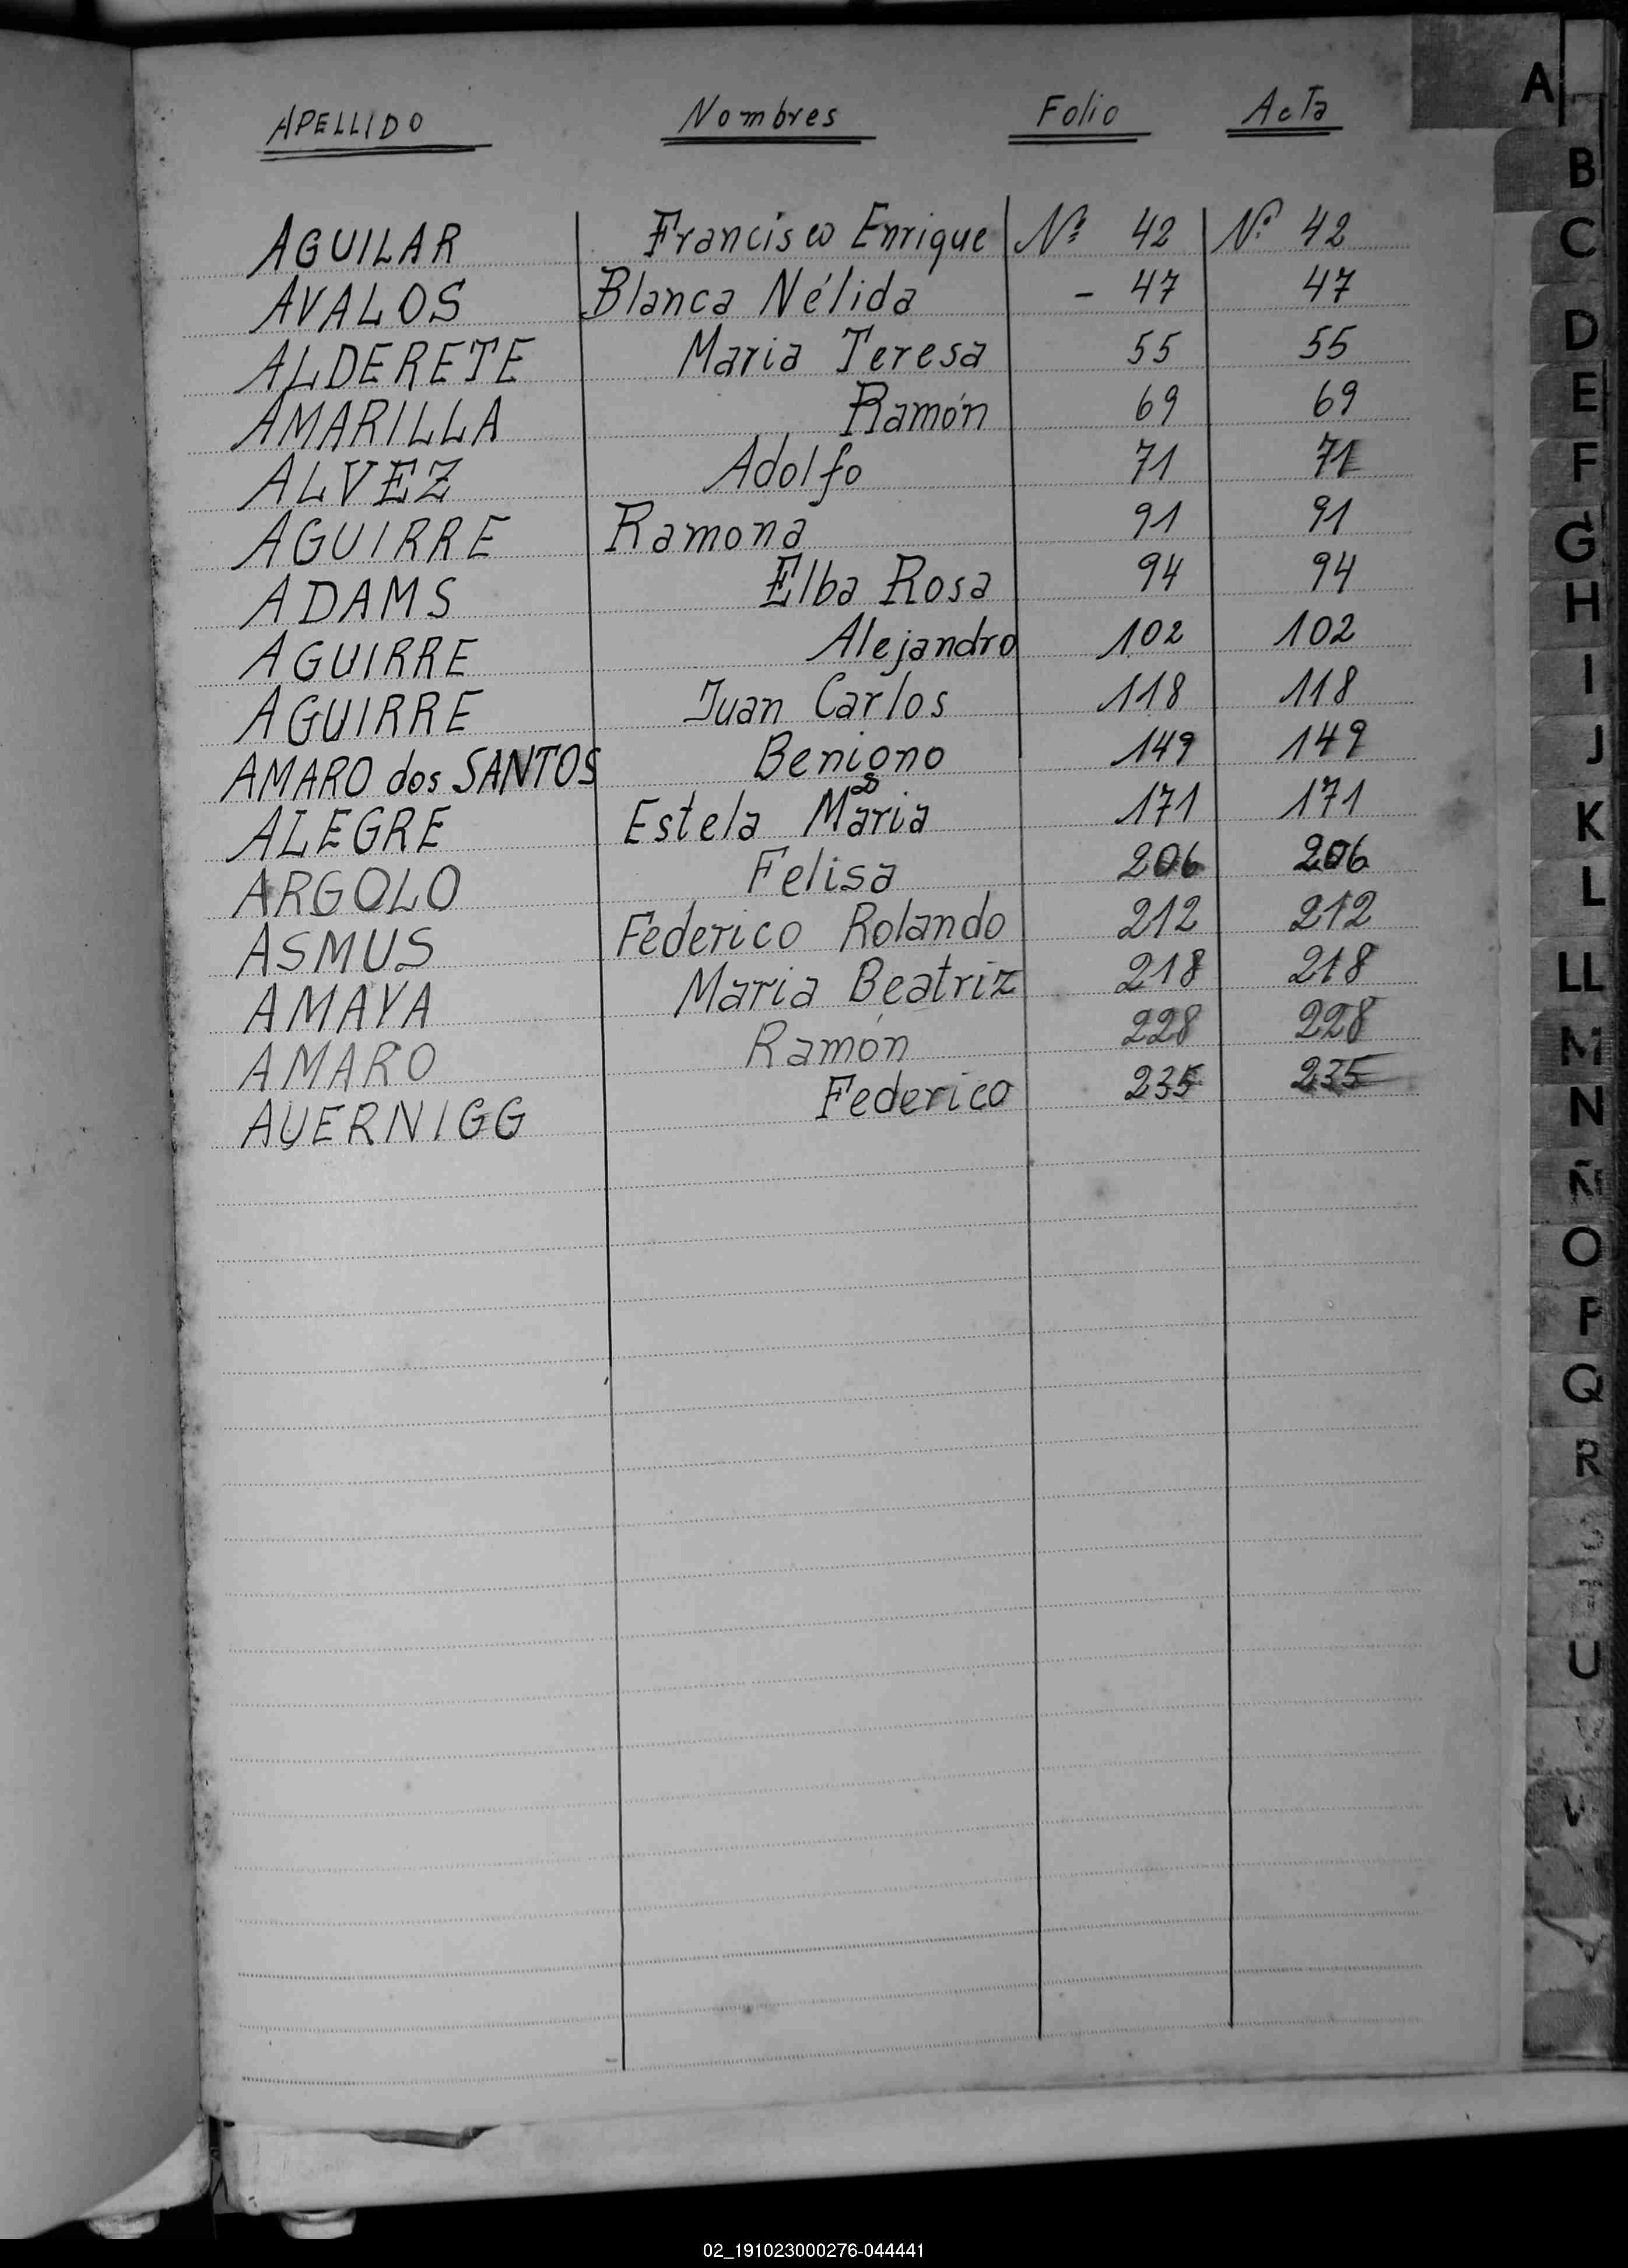 APELLIDO Nombres Folio Acta
AGUILAR Francisco Enrique Nº 42 Nº 42
AVALOS Blanca Nélida - 47 47
ALDERETE Maria Teresa 55 55
AMARILLA Ramón 69 69
ALVEZ Adolfo 71 71
AGUIRRE Ramona 91 91
ADAMS Elba Rosa 94 94
AGUIRRE Alejandro 102 102
AGUIRRE Juan Carlos 118 118
AMARO dos SANTOS Benigno 149 149
ALEGRE Estela Maria 171 171
ARGOLO Felisa 206 206
ASMUS Federico Rolando 212 212
AMAYA Maria Beatriz 218 218
AMARO Ramón 228 228
AUERNIGG Federico 235 235
A
B
C
D
E
F
G
H
I
J
K
L
LL
M
N
Ñ
O
P
Q
R
U
V
02_191023000276-044441